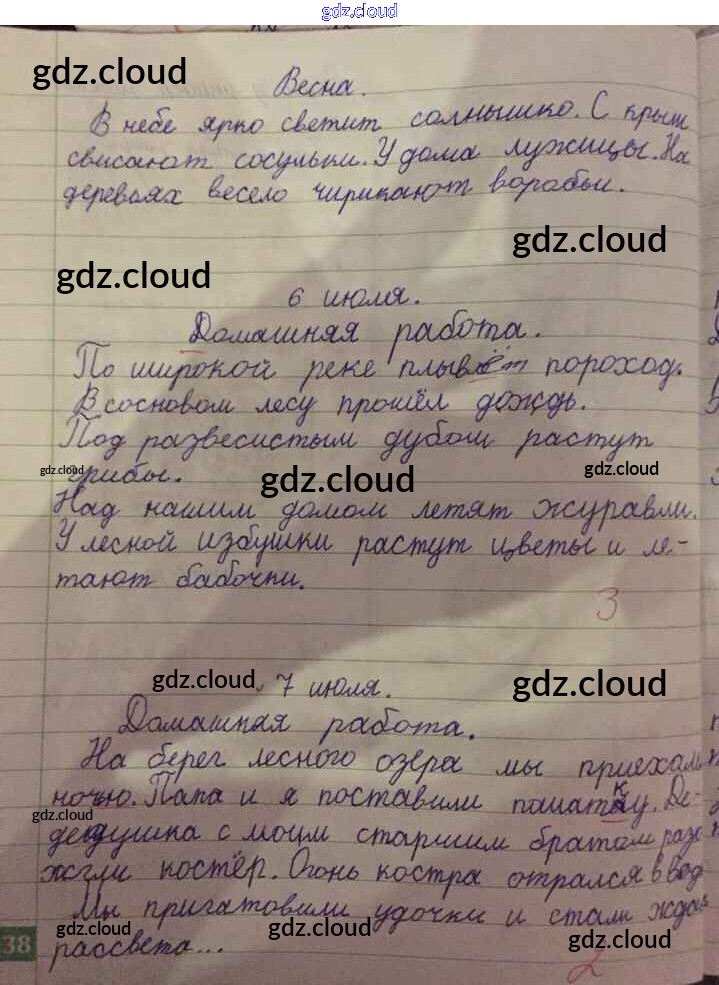 gdz.cloud
gdz.cloud
Весна.
В небе ярко светит солнышко. С крыш
свисают сосульки. У дома лужицы. На
деревьях весело чирикают воробьи.
gdz.cloud
gdz.cloud
6 июля.
Домашняя работа.
По широкой реке плывёт пороход.
В сосновом лесу прошёл дождь.
Под развесистым дубом растут
gdz.cloud грибы. gdz.cloud gdz.cloud
Над нашим домом летят журавли.
У лесной избушки растут цветы и ле-
тают бабочки.
3
gdz.cloud 7 июля. gdz.cloud
Домашняя работа.
На берег лесного озера мы приехали
gdz.cloud
ночью. Папа и я поставили палатку. Де-
дедушка с моим старшим братом раз
gdz.cloud
жгли костёр. Огонь костра отрался в вод
Мы приготовили удочки и стали ждать
gdz.cloud gdz.cloud
38 рассвета... gdz.cloud gdz.cloud
2